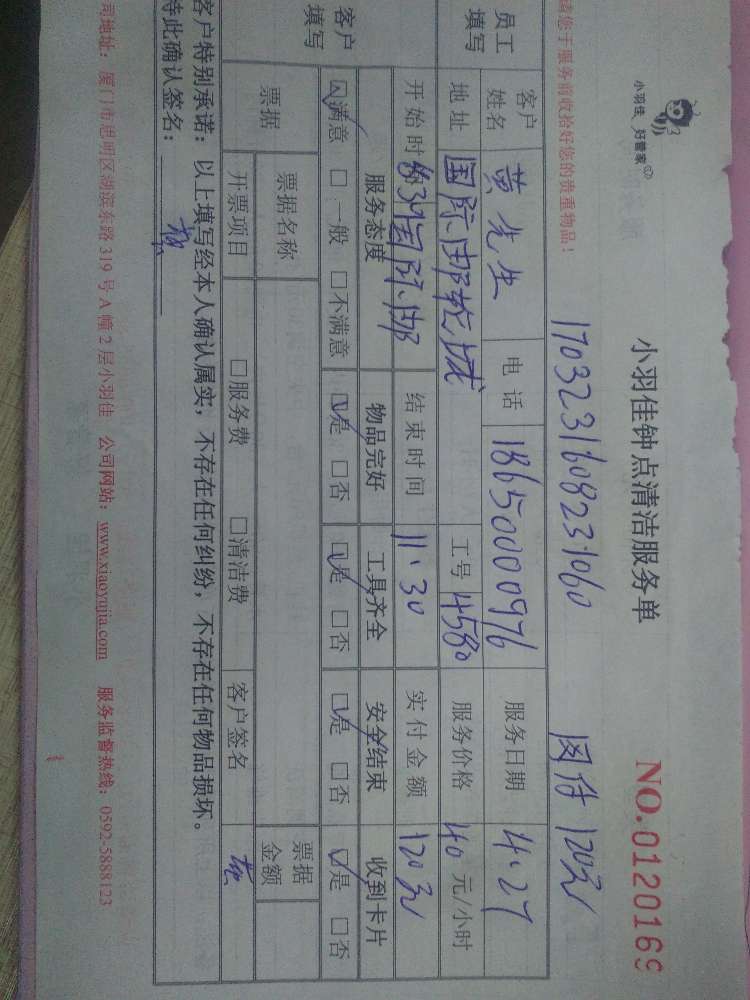 小羽佳 好管家
小羽佳钟点清洁服务单
NO.0120169
请您于服务前收拾好您的贵重物品!
1703231608231060 网付 120元
员工填写 客户姓名 黄先生 电话 18650000976 服务日期 4.27
地址 国际邮轮城 工号 4580 服务价格 40 元/小时
客户填写 开始时 国际邮 结束时间 11.30 实付金额 120元
服务态度 物品完好 工具齐全 安全结束 收到卡片
☑满意 □一般 □不满意 ☑是 □否 ☑是 □否 ☑是 □否 ☑是 □否
票据 票据名称 票据金额
开票项目 □服务费 □清洁费 客户签名
客户特别承诺: 以上填写经本人确认属实,不存在任何纠纷,不存在任何物品损坏。
特此确认签名:
司地址: 厦门市思明区湖滨东路 319 号 A 幢 2 层小羽佳 公司网站: www.xiaoyujia.com 服务监督热线: 0592-5888123